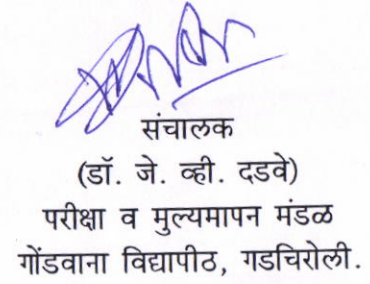 संचालक
(डॉ. जे. व्ही. दडवे)
परीक्षा व मुल्यमापन मंडळ
गोंडवाना विद्यापीठ, गडचिरोली.